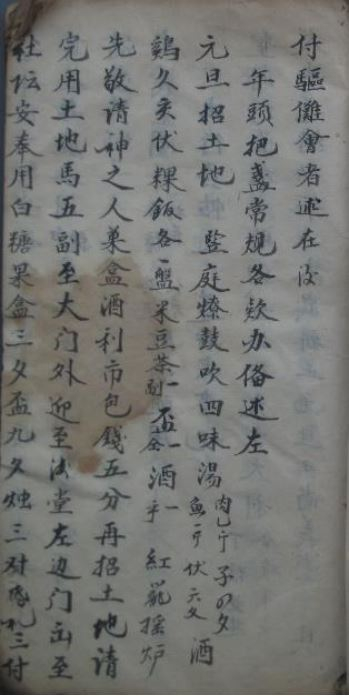 付驅儺會者述在後
年頭把盞常規各欵办俻述左
元旦招土地 监庭燎鼓吹四味湯肉乜斤子四夕魚一斤伏六文酒
鷄久夾伏粿飯各一盤米豆茶酎一盃一酒一 紅氈搖炉
先敬请神之人菓盒酒利市包錢五分再招土地请
完用土地馬五副至大门外迎至法堂左边门出至
社坛安奉用白糖果盒三夕盃九夕烛三对 三付